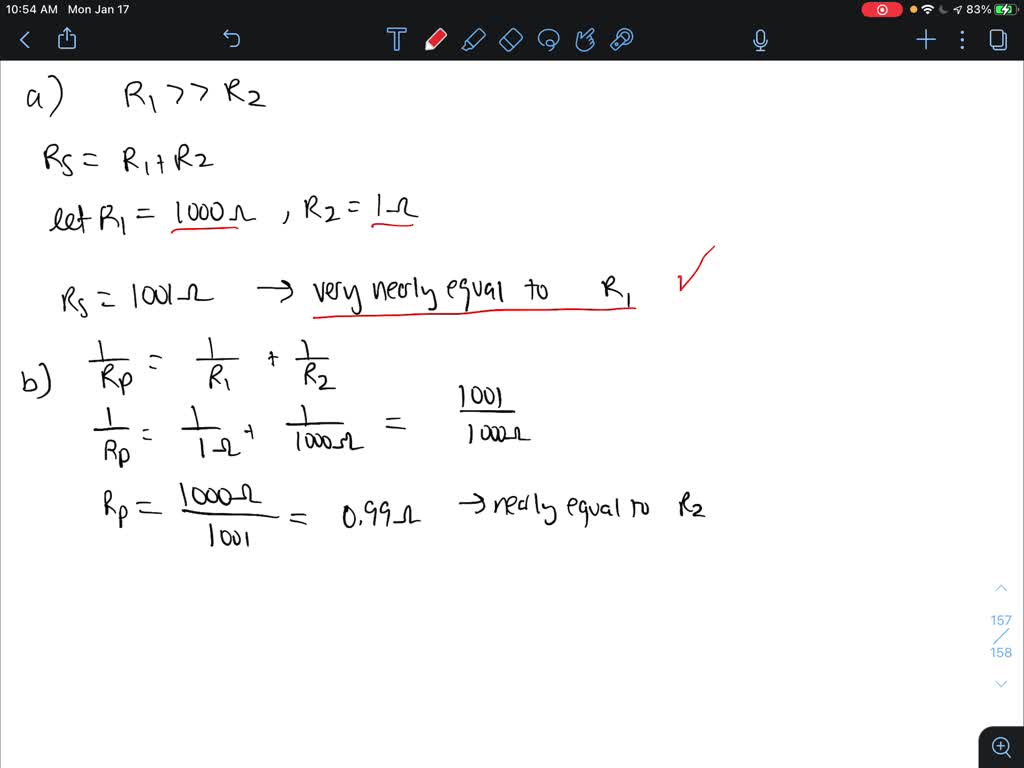 10:54 AM Mon Jan 17 83%
a) R₁ >> R₂
Rs = R₁ + R₂
let R₁ = 1000Ω , R₂ = 1Ω
Rs = 1001Ω → very nearly equal to R₁ ✓
b) 1/Rp = 1/R₁ + 1/R₂
1/Rp = 1/1Ω + 1/1000Ω = 1001/1000Ω
Rp = 1000Ω/1001 = 0.99Ω → nearly equal to R₂
157
/
158